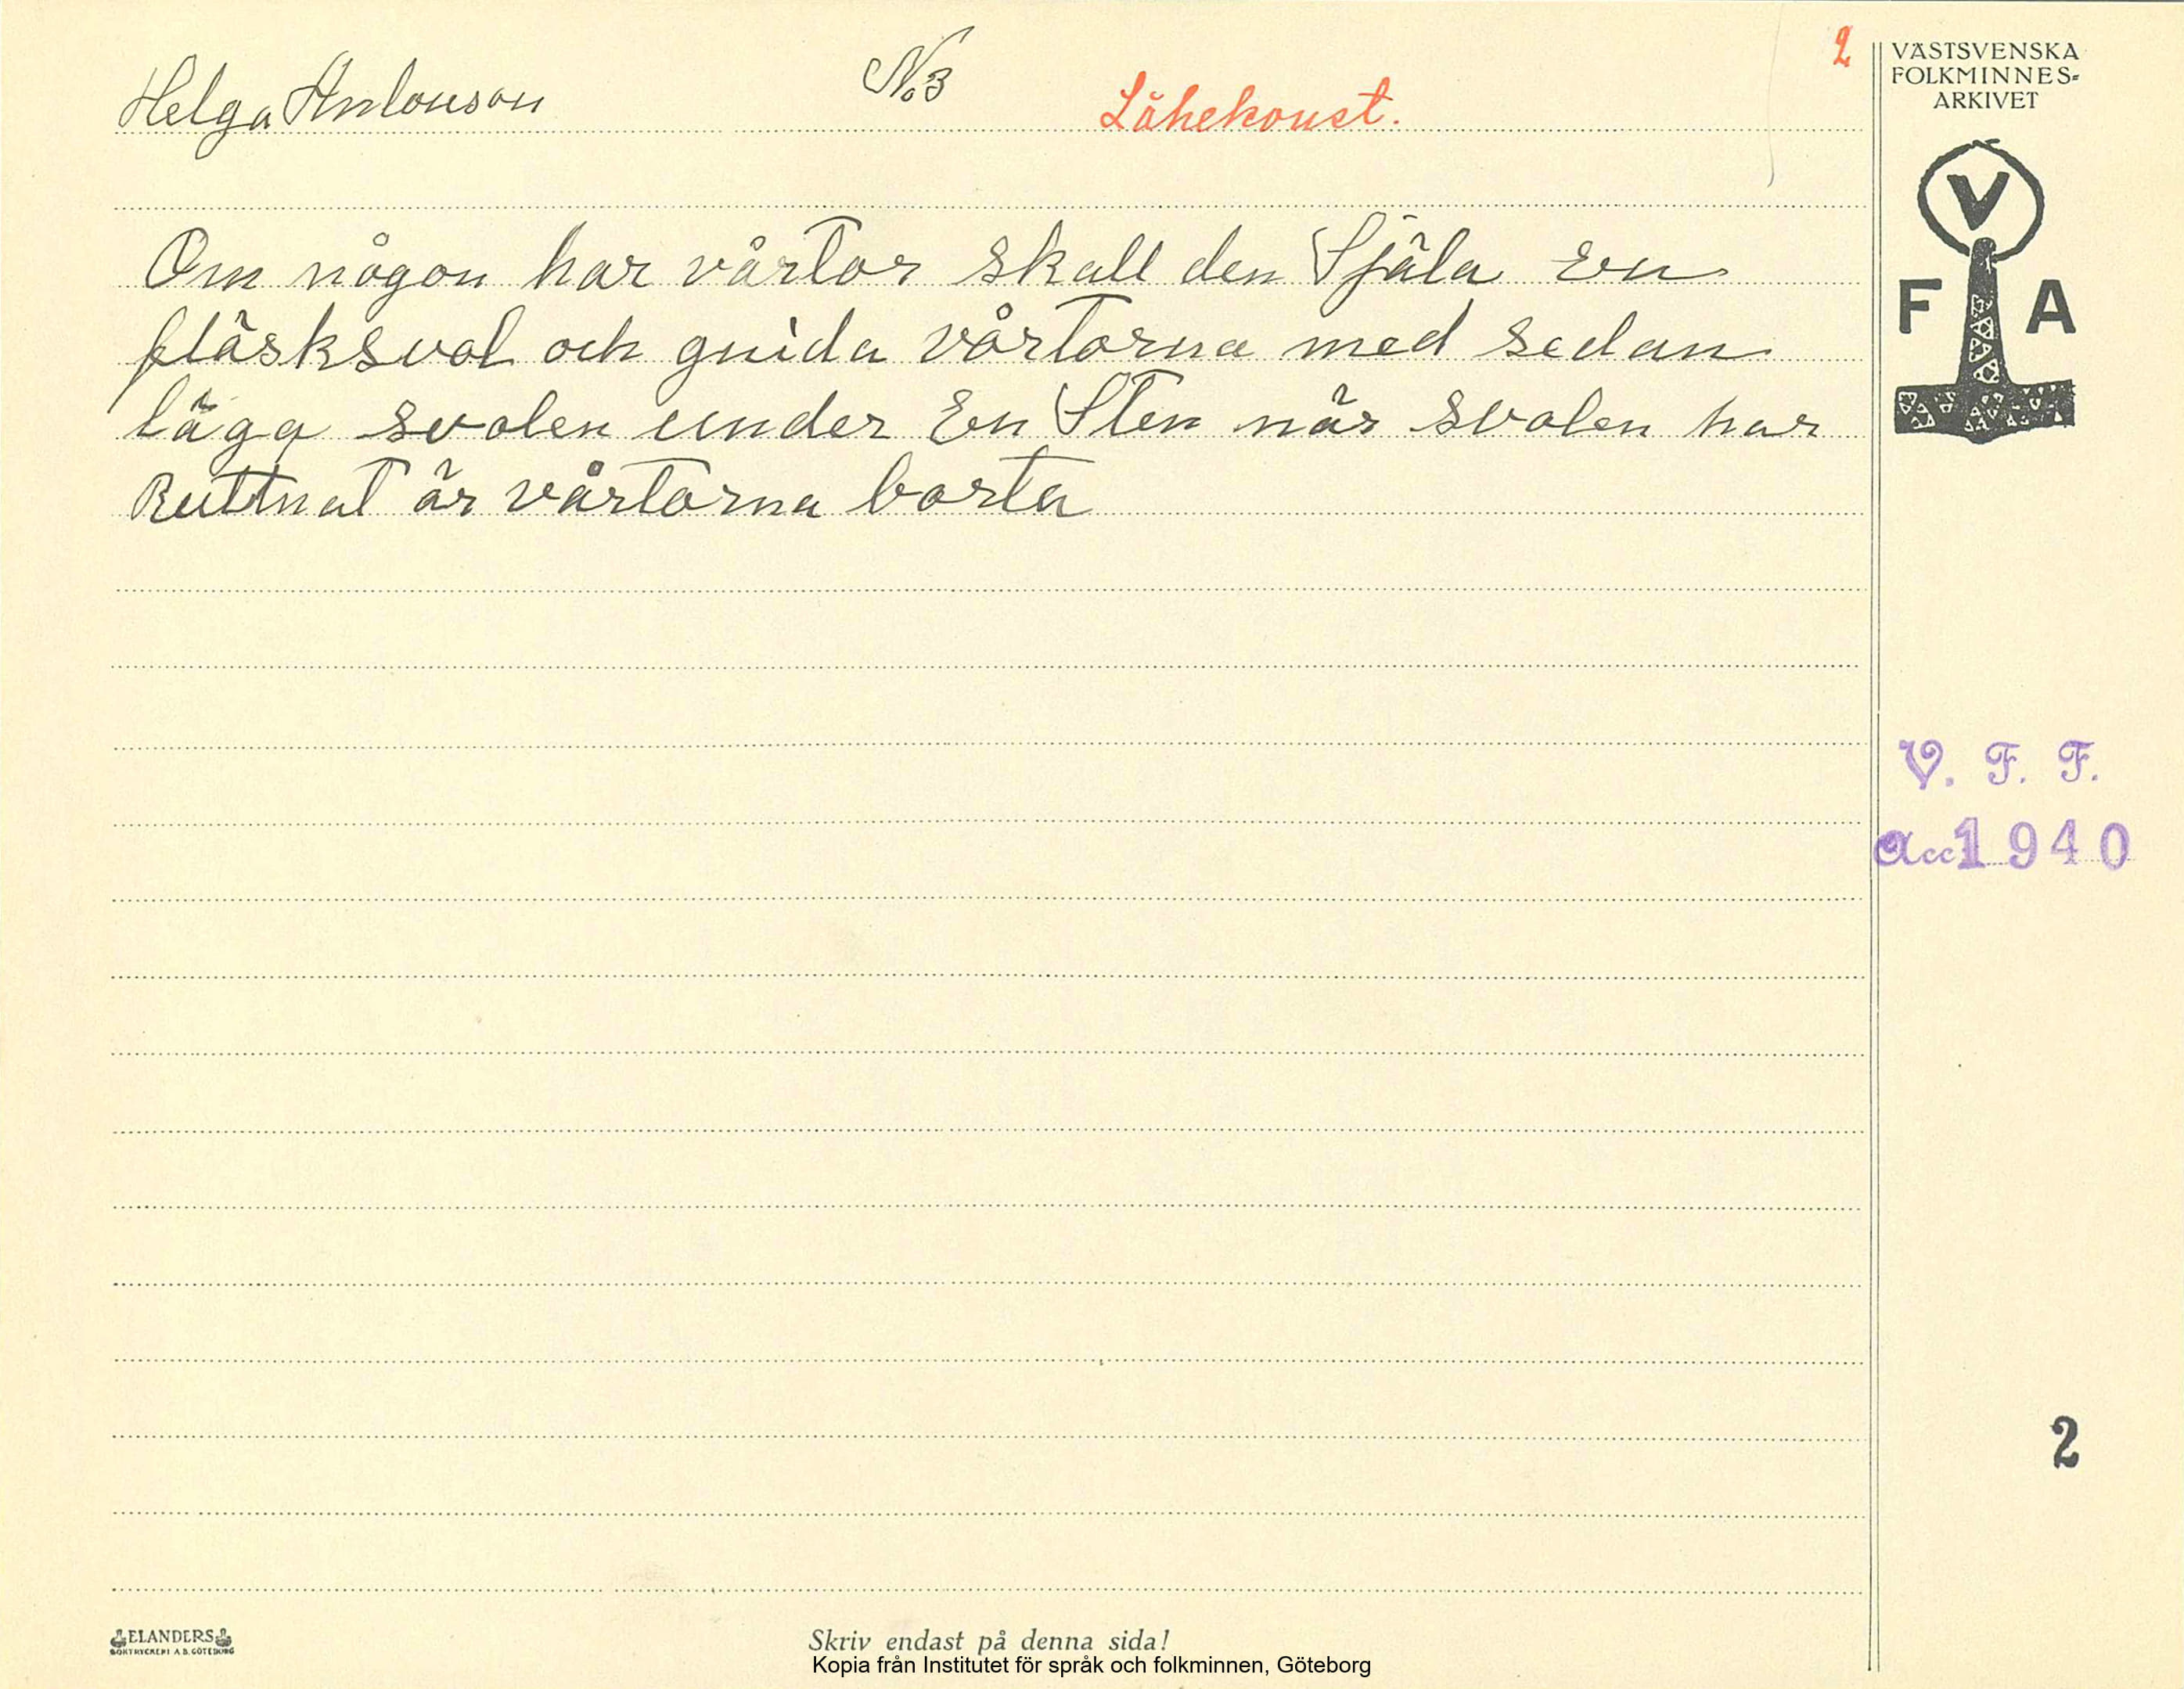 Helga Antonson
No 3
Läkekonst.
2
VÄSTSVENSKA
FOLKMINNES-
ARKIVET
V
F A
Om någon har vårtor skall den Själa en
fläsksvol och gnida vårtorna med sedan
läga svolen under En Sten når svolen har
Ruttnat är vårtorna borta
V. F. F.
Acc 1940
2
ELANDERS
BOKTRYCKERI A.B. GÖTEBORG
Skriv endast på denna sida!
Kopia från Institutet för språk och folkminnen, Göteborg